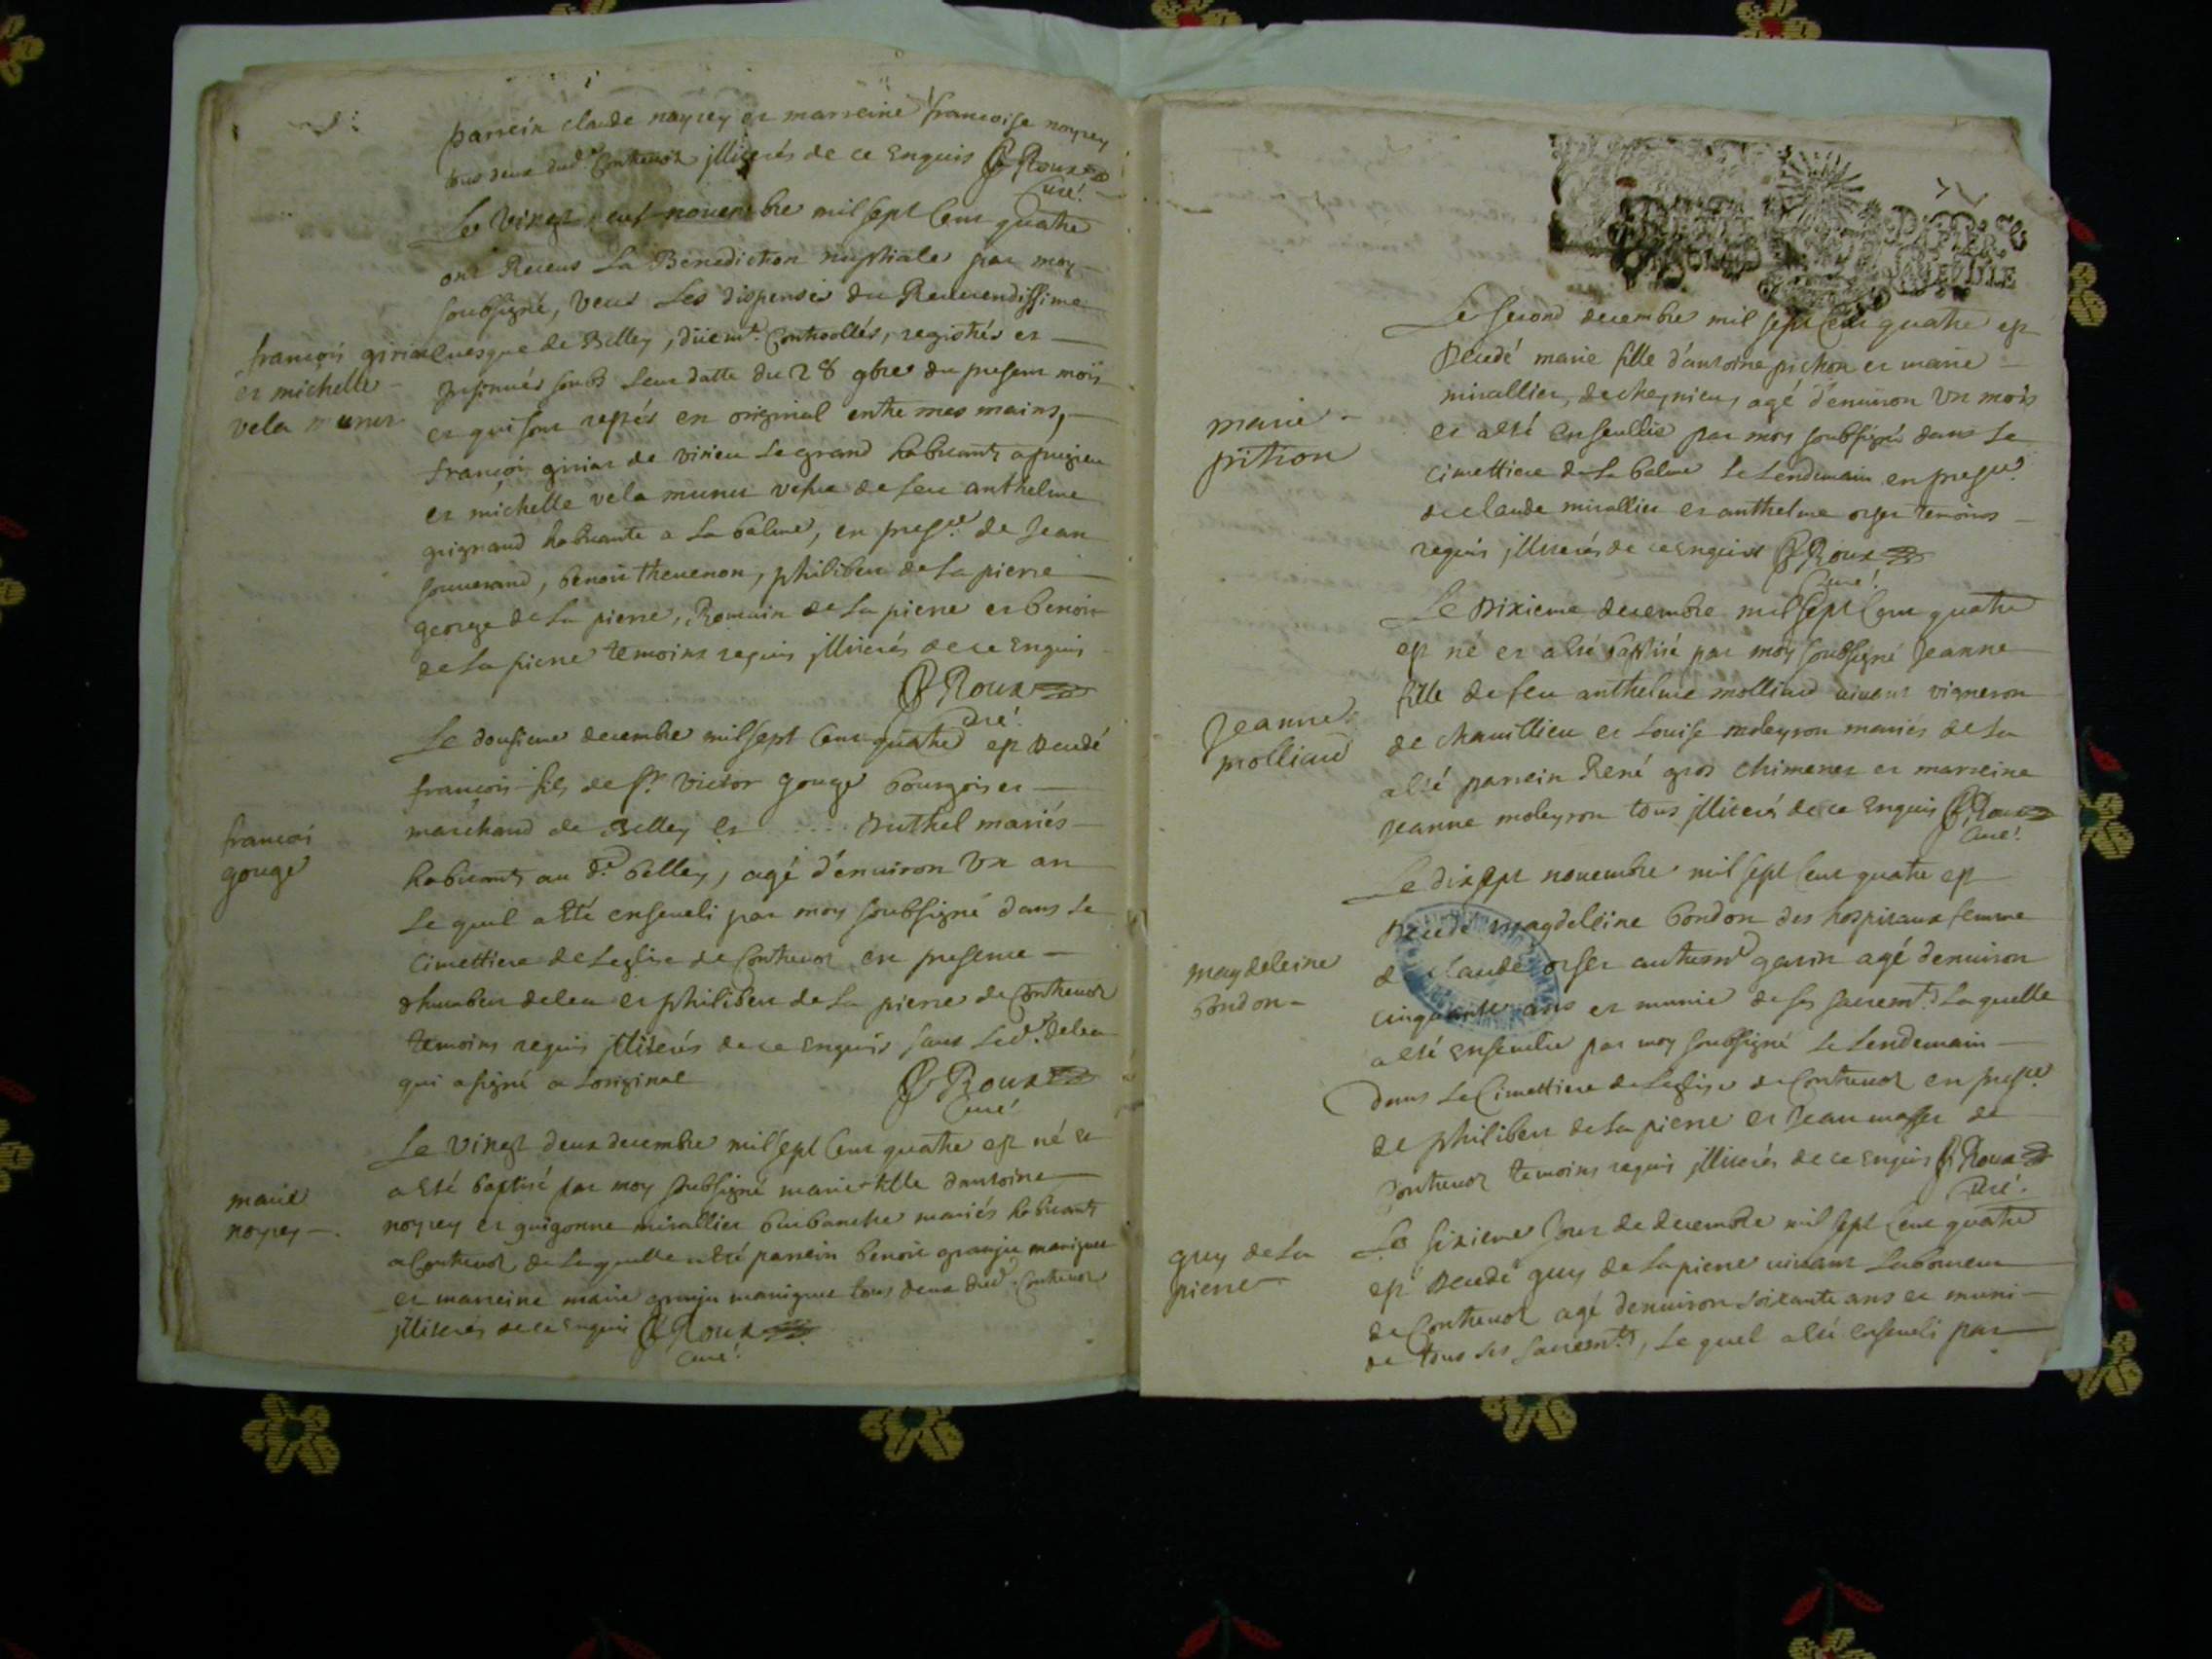 parrein claude noyrey et marreine francoise noyrey
tous deux dud.t Contrevoz jlliterés de ce Enquis Roux
Curé.
Le Vingt neuf novembre mil sept Cent quatre
ont Receus La Benediction nuptiale par moy
soubsigné, veus Les dispenses du Reverendissime
Evesque de Belley, düem.t Controollés, registrés et
jnsinués soubs Leur datte du 28 9bre du present mois
et qui sont restés en original entre mes mains,
françois girier de virieu Le grand habitant a pugieu
et michelle vela munet vefve de feu anthelme
grignand habitante a La balme, en pres.ce de Jean
souverand, benoit thevenon, philibert de La pierre
george de La pierre, Romain de La pierre et benoit
de La pierre temoins requis jlliterés de ce Enquis
Roux
Curé.
françois girier
et michelle
vela munet
Le dousieme decembre mil sept Cent quatre est decedé
françois fils de s.r victor gouge bourgois et
marchand de Belley et .... Duthel mariés
habitants au d.t belley, agé d'environ Un an
Le quel a esté enseveli par moy soubsigné dans Le
Cimettiere de L'eglise de Contrevoz en presence
d'humbert delea et philibert de La pierre de Contrevoz
temoins requis jlliterés de ce Enquis sauf Led.t delea
qui a signé a L'original Roux
Curé
françois
gouge
Le Vingt deux decembre mil sept Cent quatre est né et
a esté baptisé par moy soubsigné marie fille d'antoine
noyrey et guigonne mirallier burbanche mariés habitants
a Contrevoz de Laquelle a esté parrein benoit granju manigue
et marreine marie granju manigue tous deux dud.t Contrevoz
jlliterés de ce Enquis Roux
Curé.
marie
noyrey
PAPIER
Le second decembre mil sept Cent quatre est
Decedé marie fille d'antoine pichon et marie
mirallier, de cheynieu, agé d'environ Un mois
et a esté Ensevellie par moy soubsigné dans Le
Cimettiere de La balme Le Lendemain en pres.ce
de claude mirallier et anthelme orset temoins
requis jlliterés de ce Enquis Roux
Curé.
marie
Le Dixieme decembre mil sept Cent quatre
est né et a esté baptisé par moy soubsigné Jeanne
fille de feu anthelme molliard vivant vigneron
de chavillieu et Louise moleyron mariés de La
a esté parrein René gros chimenet et marreine
Jeanne moleyron tous jlliterés de ce Enquis Roux
Curé.
Jeanne
molliard
Le dix sept novembre mil sept Cent quatre est
Decedé magdeleine bondon des hospitaux femme
de claude orset autrem.t gavin agé d'environ
cinquante ans et munie de ses sacrem.ts Laquelle
a esté Ensevelie par moy soubsigné Le Lendemain
dans Le Cimettiere de L'eglise de Contrevoz en pres.ce
de philibert de La pierre et Jean masset de
Contrevoz temoins requis jlliterés de ce Enquis Roux
Curé.
magdeleine
bondon
Le sixieme Jour de decembre mil sept Cent quatre
est Decedé guy de La pierre vivant Laboureur
de Contrevoz agé d'environ soixante ans et muni
de tous ses sacrem.ts, Le quel a esté enseveli par
guy de La
pierre